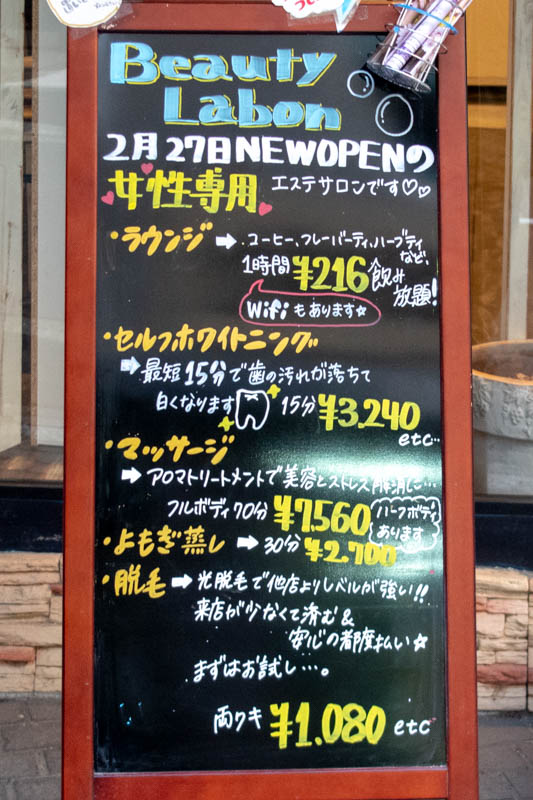 Beauty
Labon
2月27日NEWOPENの
女性専用 エステサロンです♡♡
・ラウンジ ➡ コーヒー、フレーバーティ、ハーブティ
など、
1時間 ¥216 飲み
放題!
Wifi もあります☆
・セルフホワイトニング
➡最短15分で歯の汚れが落ちて
白くなります 15分 ¥3,240
etc…
・マッサージ
➡アロマトリートメントで美容とストレス解消に…
フルボディ70分 ¥7,560 ハーフボディ
あります
・よもぎ蒸し ➡ 30分 ¥2,700
・脱毛 ➡ 光脱毛で他店よりレベルが強い!!
来店が少なくて済む&
安心の都度払い☆
まずはお試し…。
両ワキ ¥1,080 etc